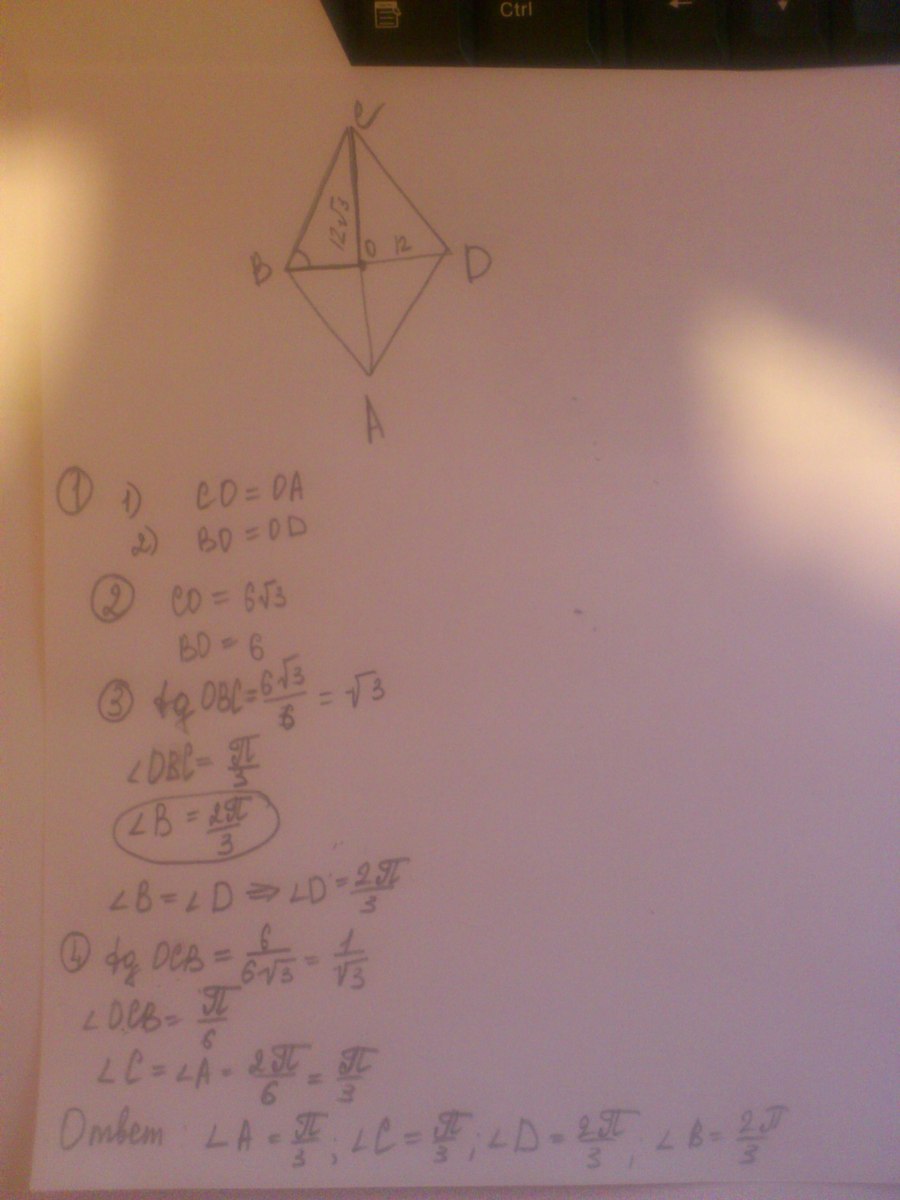 Ctrl
C
12√3
O 12
B
D
A
① 1) CO = OA
2) BO = OD
② CO = 6√3
BO = 6
③ tg OBC = 6√3/6 = √3
∠OBC = π/3
∠B = 2π/3
∠B = ∠D ⇒ ∠D = 2π/3
④ tg OCB = 6/6√3 = 1/√3
∠OCB = π/6
∠C = ∠A = 2π/6 = π/3
Ответ: ∠A = π/3; ∠C = π/3; ∠D = 2π/3; ∠B = 2π/3